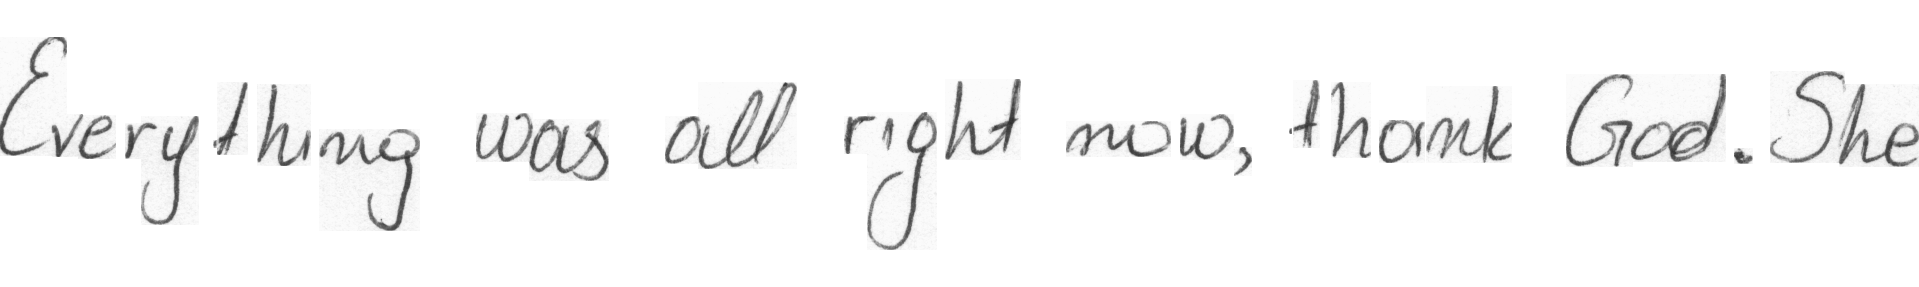 Everything was all right now, thank God. She